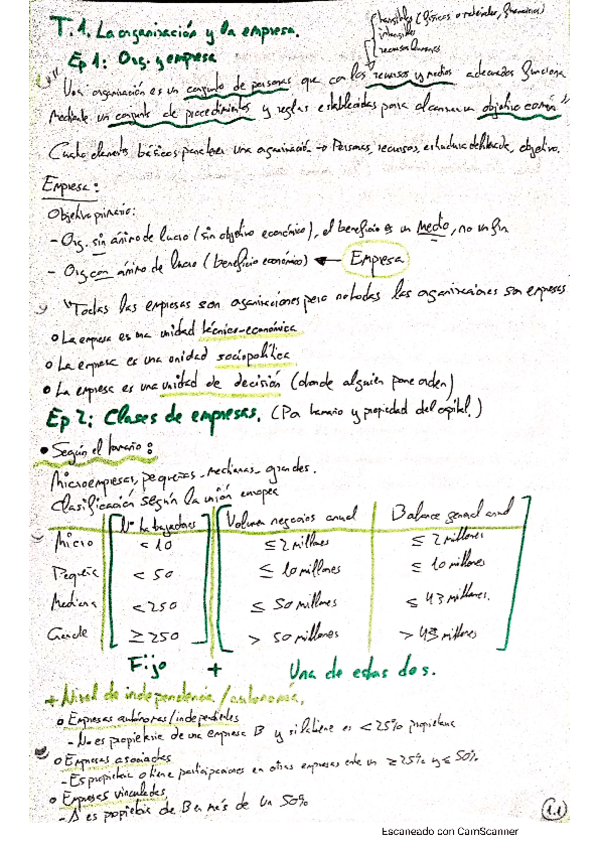 T.1. La organización y la empresa.
tangibles (físicos o materiales, financieros)
intangibles
recursos humanos
Ep 1: Org. y empresa
"Una organización es un conjunto de personas que con los recursos y medios adecuados funciona
mediante un conjunto de procedimientos y reglas establecidas para alcanzar un objetivo común"
Cuatro elementos básicos para tener una organización → Personas, recursos, estructura deliberada, objetivo.
Empresa:
Objetivo primario:
- Org. sin ánimo de lucro (sin objetivo económico), el beneficio es un medio, no un fin
- Org con ánimo de lucro (beneficio económico) ← Empresa
"Todas las empresas son organizaciones pero no todas las organizaciones son empresas
o La empresa es una unidad técnico-económica
o La empresa es una unidad sociopolítica
o La empresa es una unidad de decisión (donde alguien pone orden)
Ep 2: Clases de empresas. (Por tamaño y propiedad del capital.)
• Según el tamaño:
Microempresas, pequeñas - medianas - grandes.
Clasificación según la unión europea
Nº trabajadores Volumen negocios anual Balance general anual
Micro < 10 ≤ 2 millones ≤ 2 millones
Pequeña < 50 ≤ 10 millones ≤ 10 millones
Mediana < 250 ≤ 50 millones ≤ 43 millones.
Grande ≥ 250 > 50 millones > 43 millones
Fijo + Una de estas dos.
+ Nivel de independencia / autonomía.
o Empresas autónomas / independientes
- No es propietaria de una empresa B y si la tiene es < 25% propietaria
o Empresas asociadas
- Es propietaria o tiene participaciones en otras empresas entre un ≥ 25% y ≤ 50%
o Empresas vinculadas
- A es propietaria de B en más de un 50%
1.1
Escaneado con CamScanner